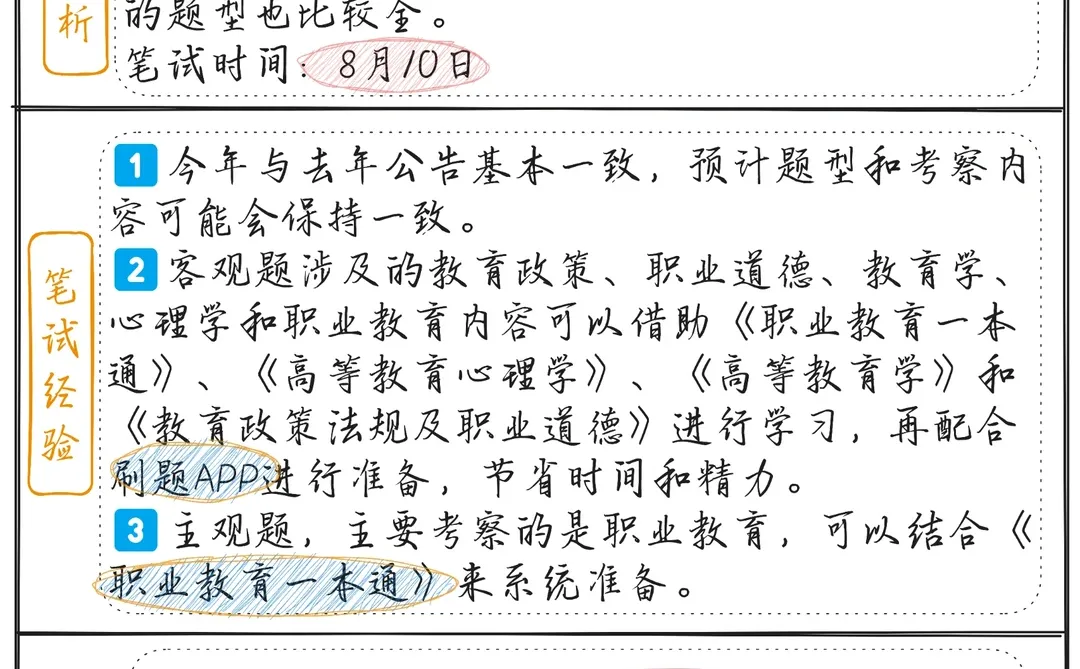 析
的题型也比较全。
笔试时间：8月10日
笔试经验
1 今年与去年公告基本一致，预计题型和考察内
容可能会保持一致。
2 客观题涉及的教育政策、职业道德、教育学、
心理学和职业教育内容可以借助《职业教育一本
通》、《高等教育心理学》、《高等教育学》和
《教育政策法规及职业道德》进行学习，再配合
刷题APP进行准备，节省时间和精力。
3 主观题，主要考察的是职业教育，可以结合《
职业教育一本通》来系统准备。